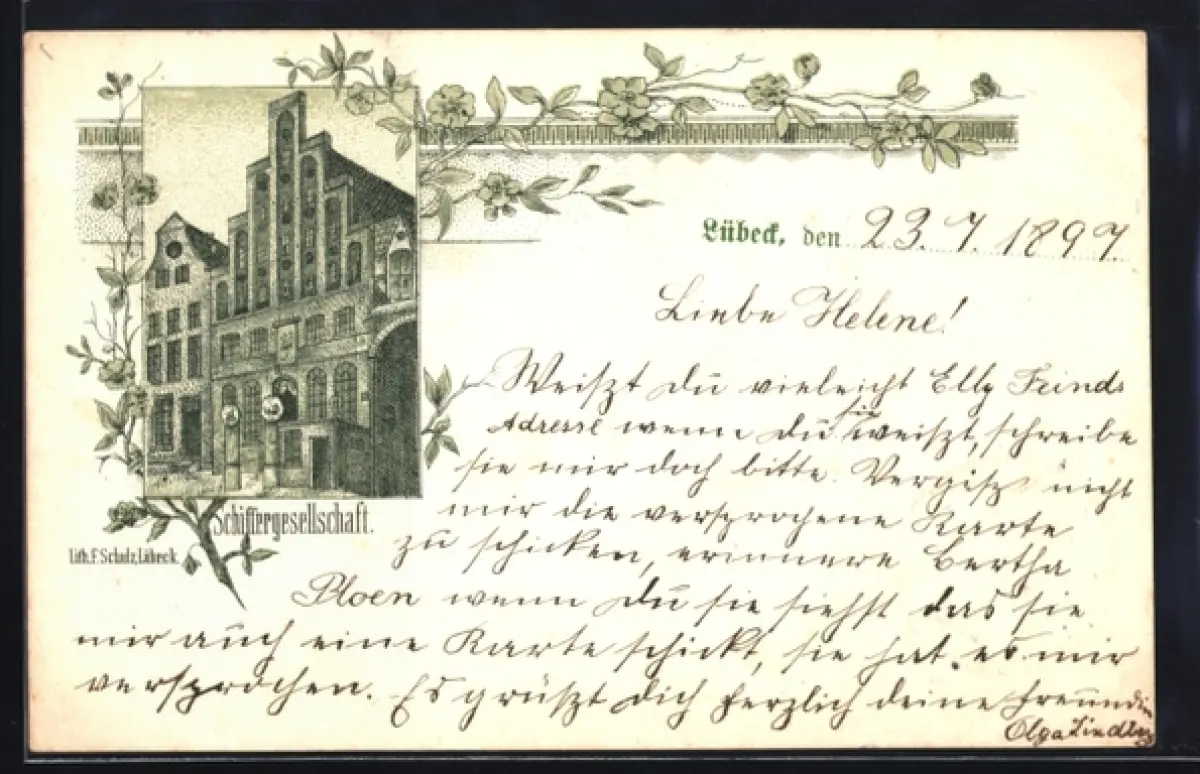 Lübeck, den 23. 7. 1897.
Liebe Helene!
Weiszt du vieleicht Elly Feinds
Adresse wenn du sie weiszt, schreibe
sie mir doch bitte. Vergisz nicht
mir die versprochene Karte
zu schicken, erinnere Bertha
Ploen wenn du sie siehst das sie
mir auch eine Karte schickt, sie hat es mir
versprochen. Es grüszt dich herzlich deine Freundin
Olga
Schiffergesellschaft.
Lith. F. Schulz, Lübeck.